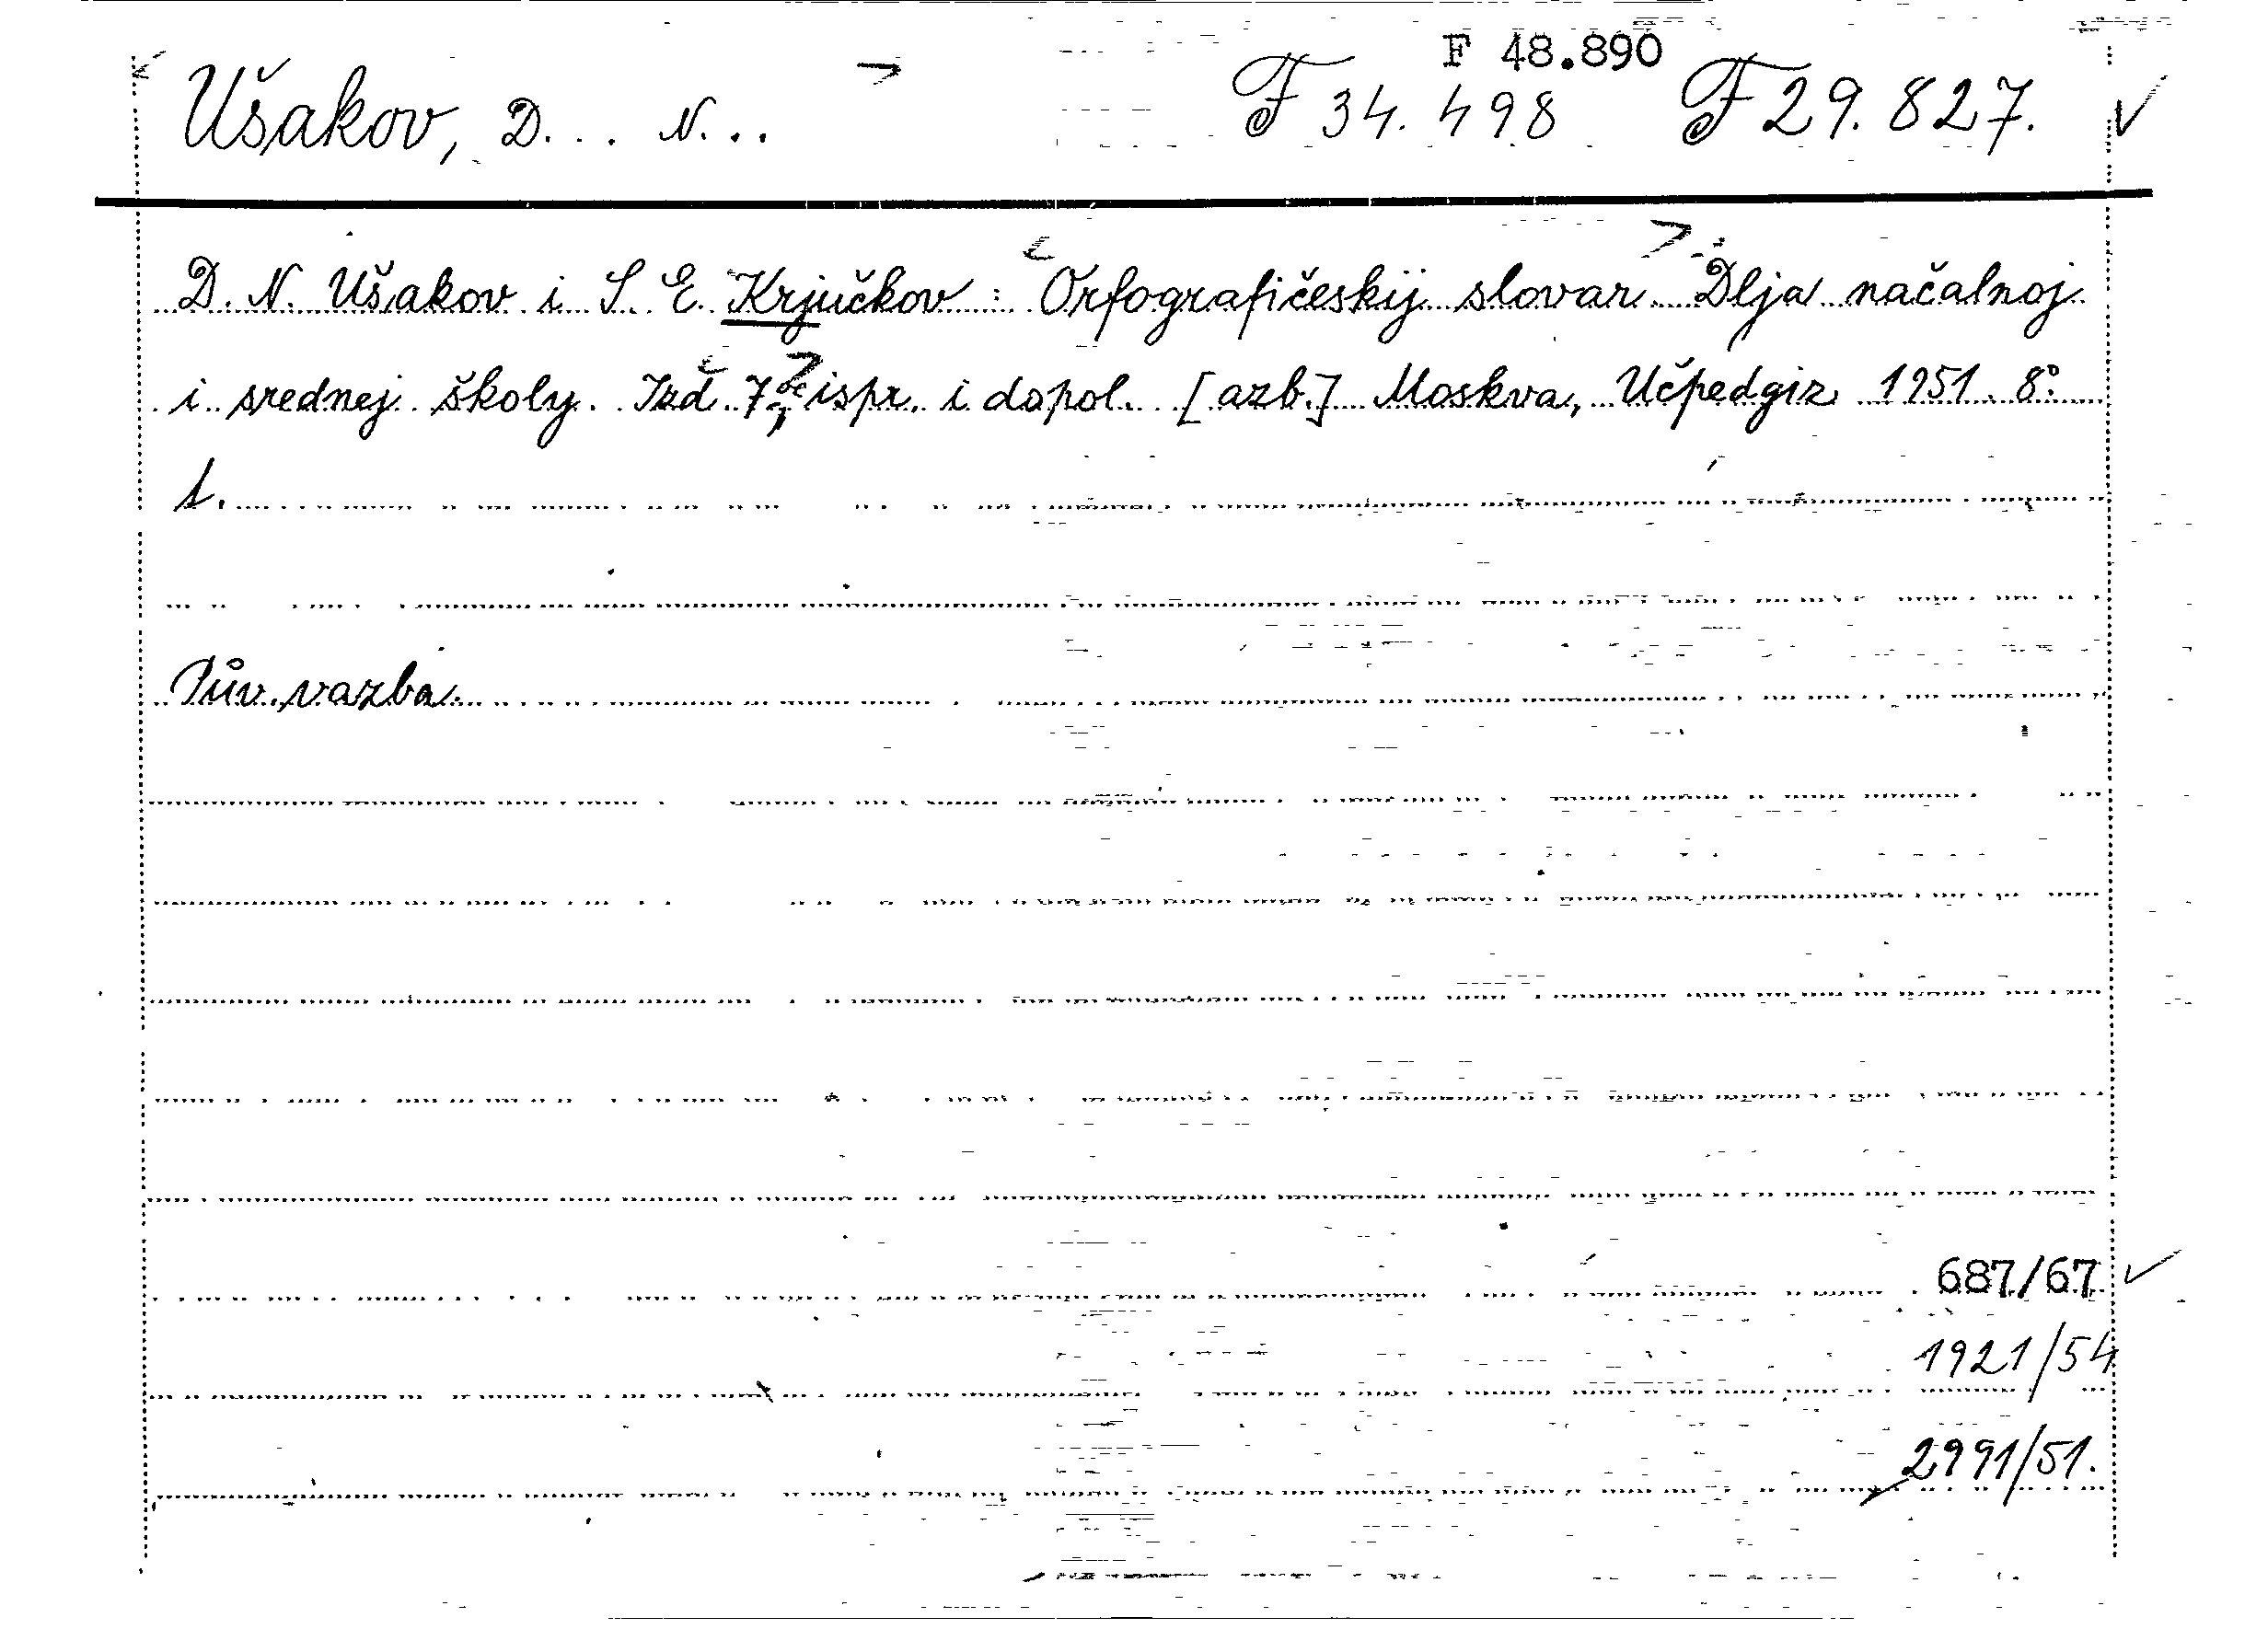 F 48.890
Ušakov, D... N... F 34.498 F 29.827.
D. N. Ušakov i S. E. Krjučkov: Orfografičeskij slovar. Dlja načalnoj
i srednej školy. Izd. 7, ispr. i dopol. [azb.] Moskva, Učpedgiz 1951. 8°.
1.
Pův. vazba.
687/67
1921/54
2991/51.